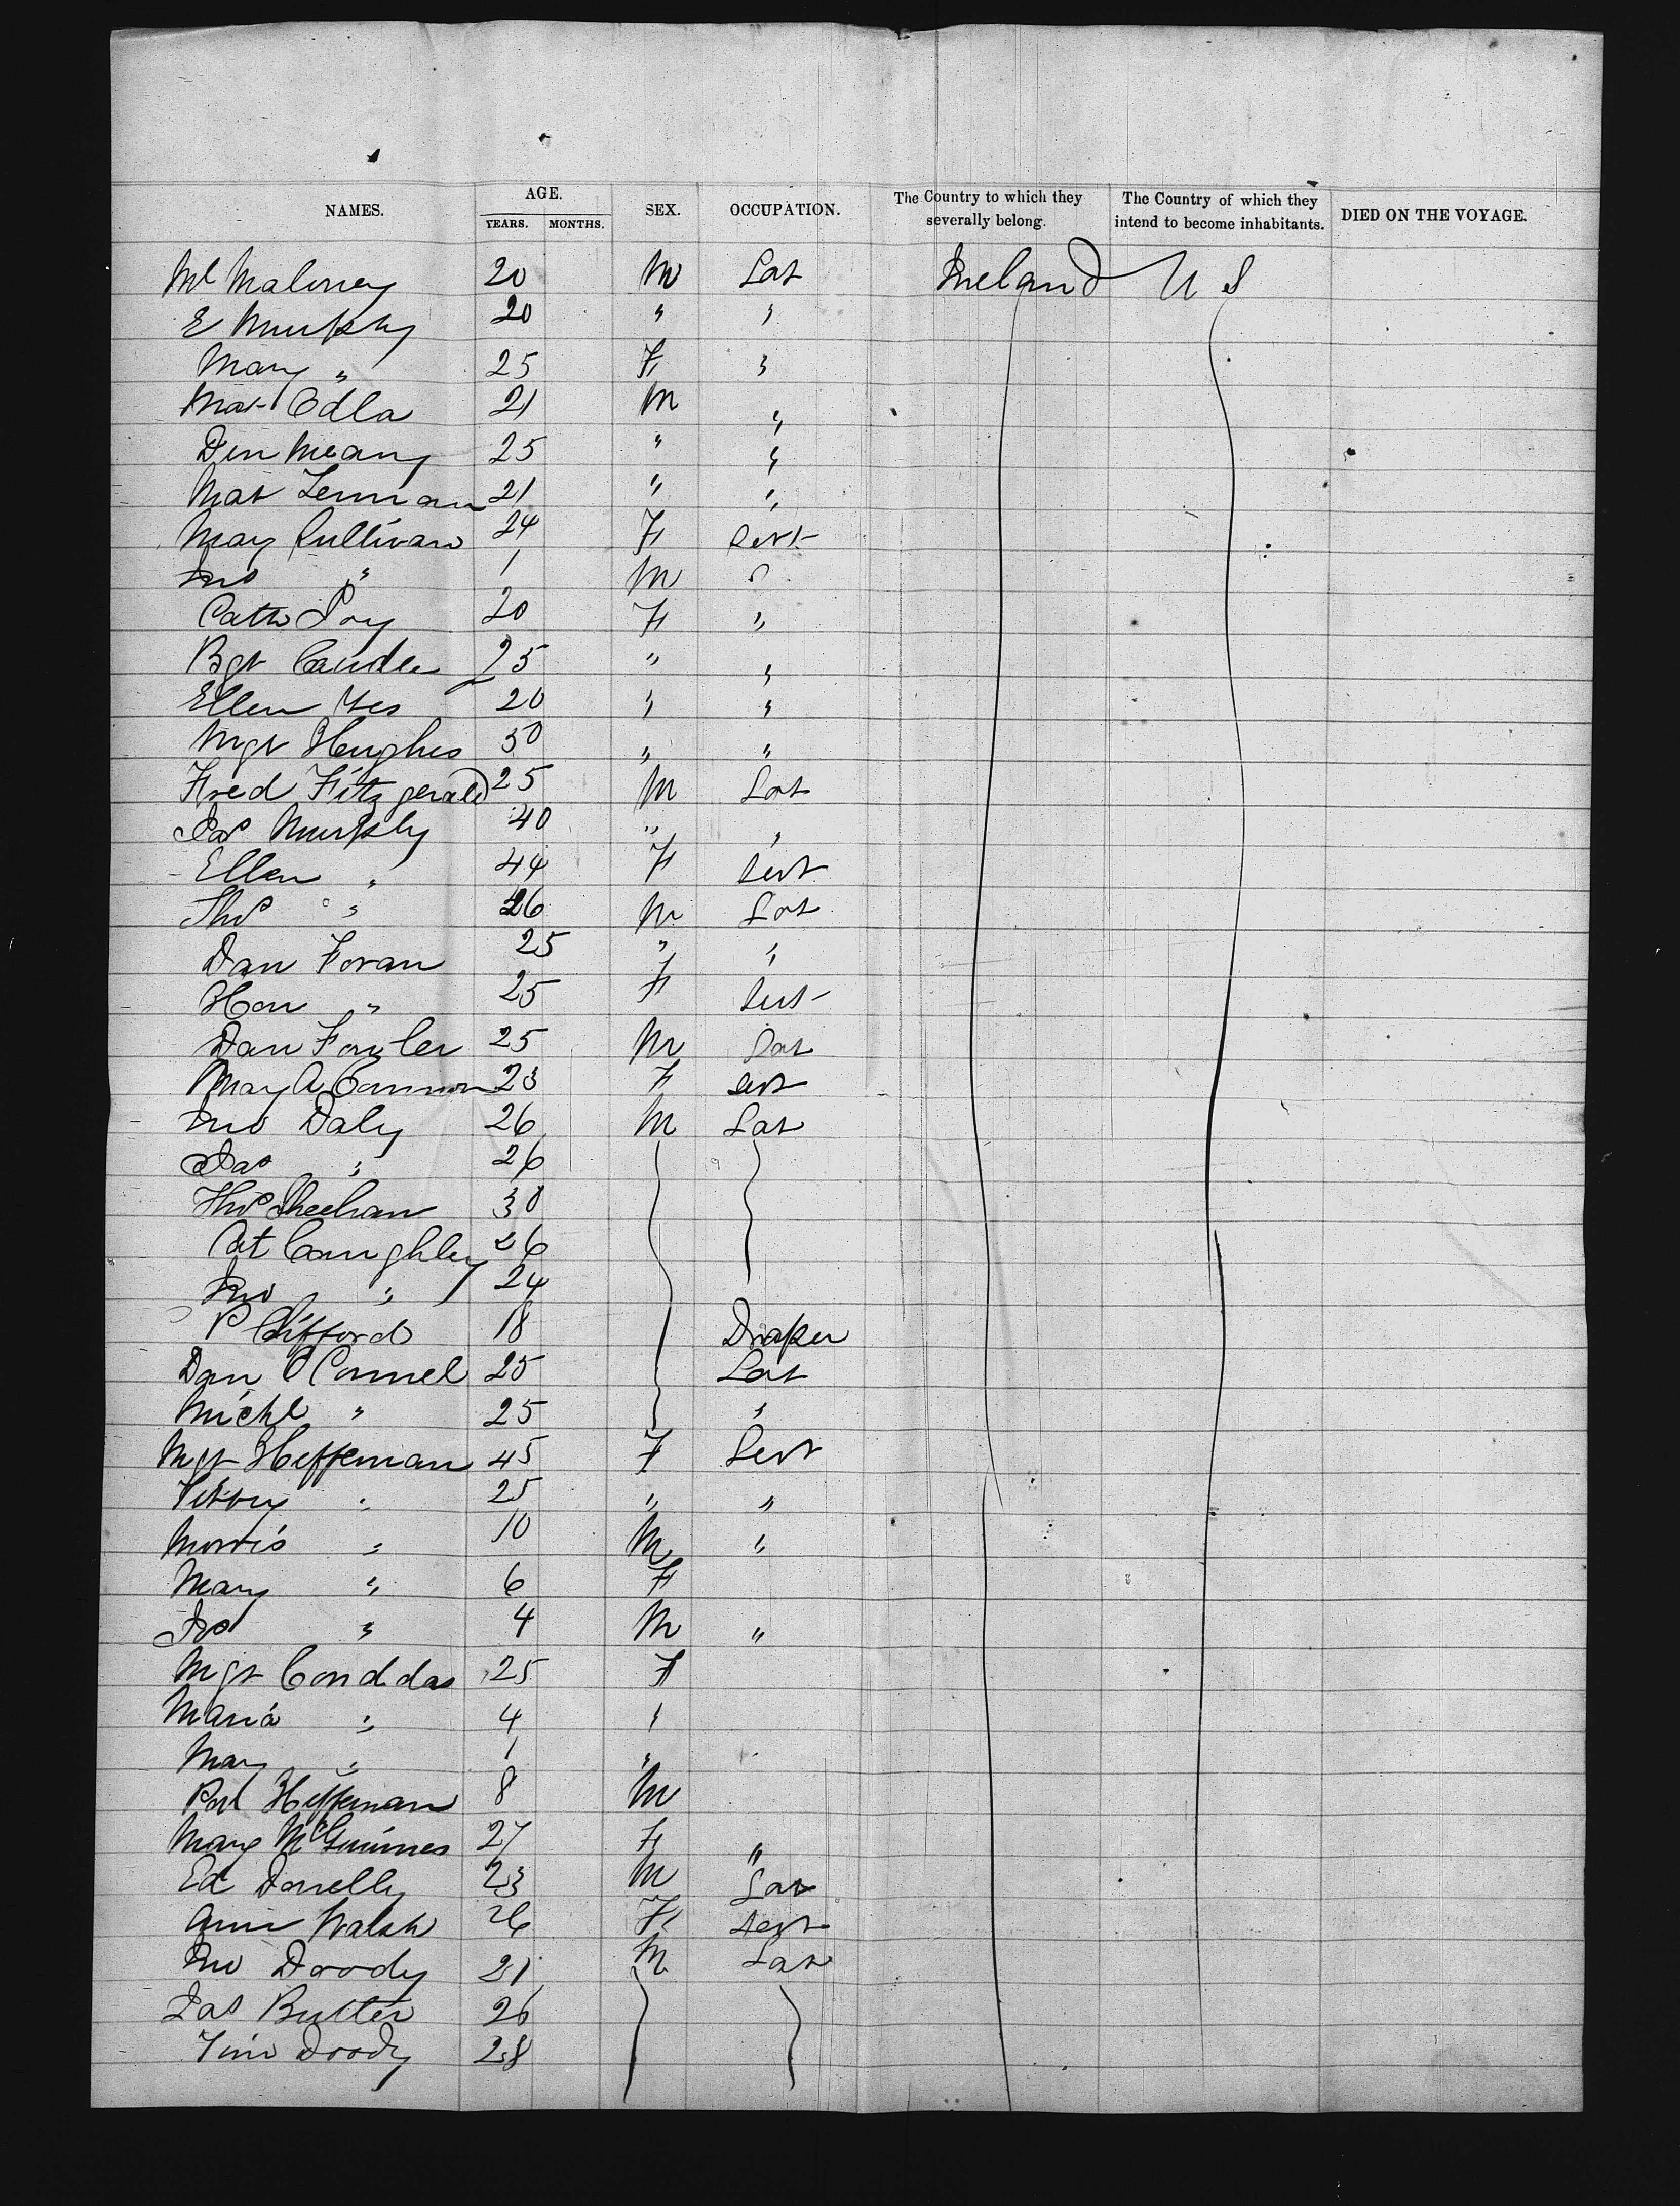 NAMES. AGE. YEARS. MONTHS. SEX. OCCUPATION. The Country to which they severally belong. The Country of which they intend to become inhabitants. DIED ON THE VOYAGE.
Ml Maloney 20 M Lab Ireland U S
E Murphy 20 " "
Mary " 25 F "
Mat Odla 21 M "
Den Meany 25 " "
Mat Lennan 21 " "
Mary Sullivan 24 F Servt
Jno " 1 M
Cath Joy 20 F "
Bgt Caudle 25 " "
Ellen 20 " "
Mgt Hughes 30 " "
Fred Fitzgerald 25 M Lab
Jas Murphy 40 " "
Ellen " 44 F Servt
Thos " 26 M Lab
Dan Foran 25 " "
Hon " 25 F Servt
Dan Fowler 25 M Lab
Mary A Cannon 23 F Servt
Jno Daly 26 M Lab
Jas " 26
Thos Sheehan 30
Cat Coughley 26
Jno " 24
P Clifford 18 Draper
Dan O Connel 25 Lab
Michl " 25 "
Mgt Heffernan 45 F Servt
25 " "
Morris " 10 M "
Mary " 6 F
Jas " 4 M "
Mgt Conddas 25 F
Maria " 4 "
Mary " 1 "
Pat Heffernan 8 M
Mary McGuinnes 27 F "
Ed Donelly 23 M Lab
Ann Walsh 26 F Servt
Jno Doody 21 M Lab
Jas Butler 26
Tim Doody 28